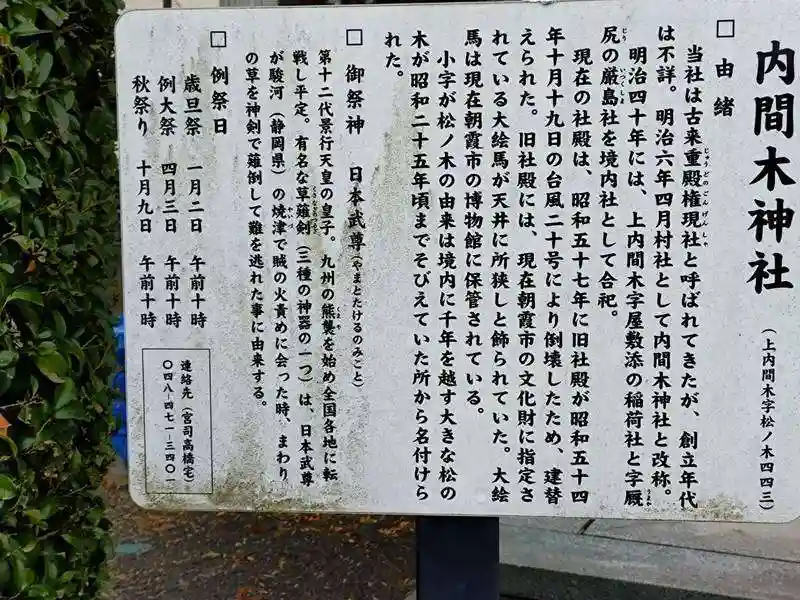 内間木神社
(上内間木字松ノ木四四三)
□ 由緒
当社は古来重殿権現社と呼ばれてきたが、創立年代
は不詳。明治六年四月村社として内間木神社と改称。
明治四十年には、上内間木字屋敷添の稲荷社と字厩
尻の厳島社を境内社として合祀。
現在の社殿は、昭和五十七年に旧社殿が昭和五十四
年十月十九日の台風二十号により倒壊したため、建替
えられた。旧社殿には、現在朝霞市の文化財に指定さ
れている大絵馬が天井に所狭しと飾られていた。大絵
馬は現在朝霞市の博物館に保管されている。
小字が松ノ木の由来は境内に千年を越す大きな松の
木が昭和二十五年頃までそびえていた所から名付けら
れた。
□ 御祭神 日本武尊(やまとたけるのみこと)
第十二代景行天皇の皇子。九州の熊襲を始め全国各地に転
戦し平定。有名な草薙剣(三種の神器の一つ)は、日本武尊
が駿河(静岡県)の焼津で賊の火責めに会った時、まわり
の草を神剣で薙倒して難を逃れた事に由来する。
□ 例祭日
歳旦祭 一月二日 午前十時
例大祭 四月三日 午前十時
秋祭り 十月九日 午前十時
連絡先(宮司高橋宅)
〇四八-四七一-三四〇一